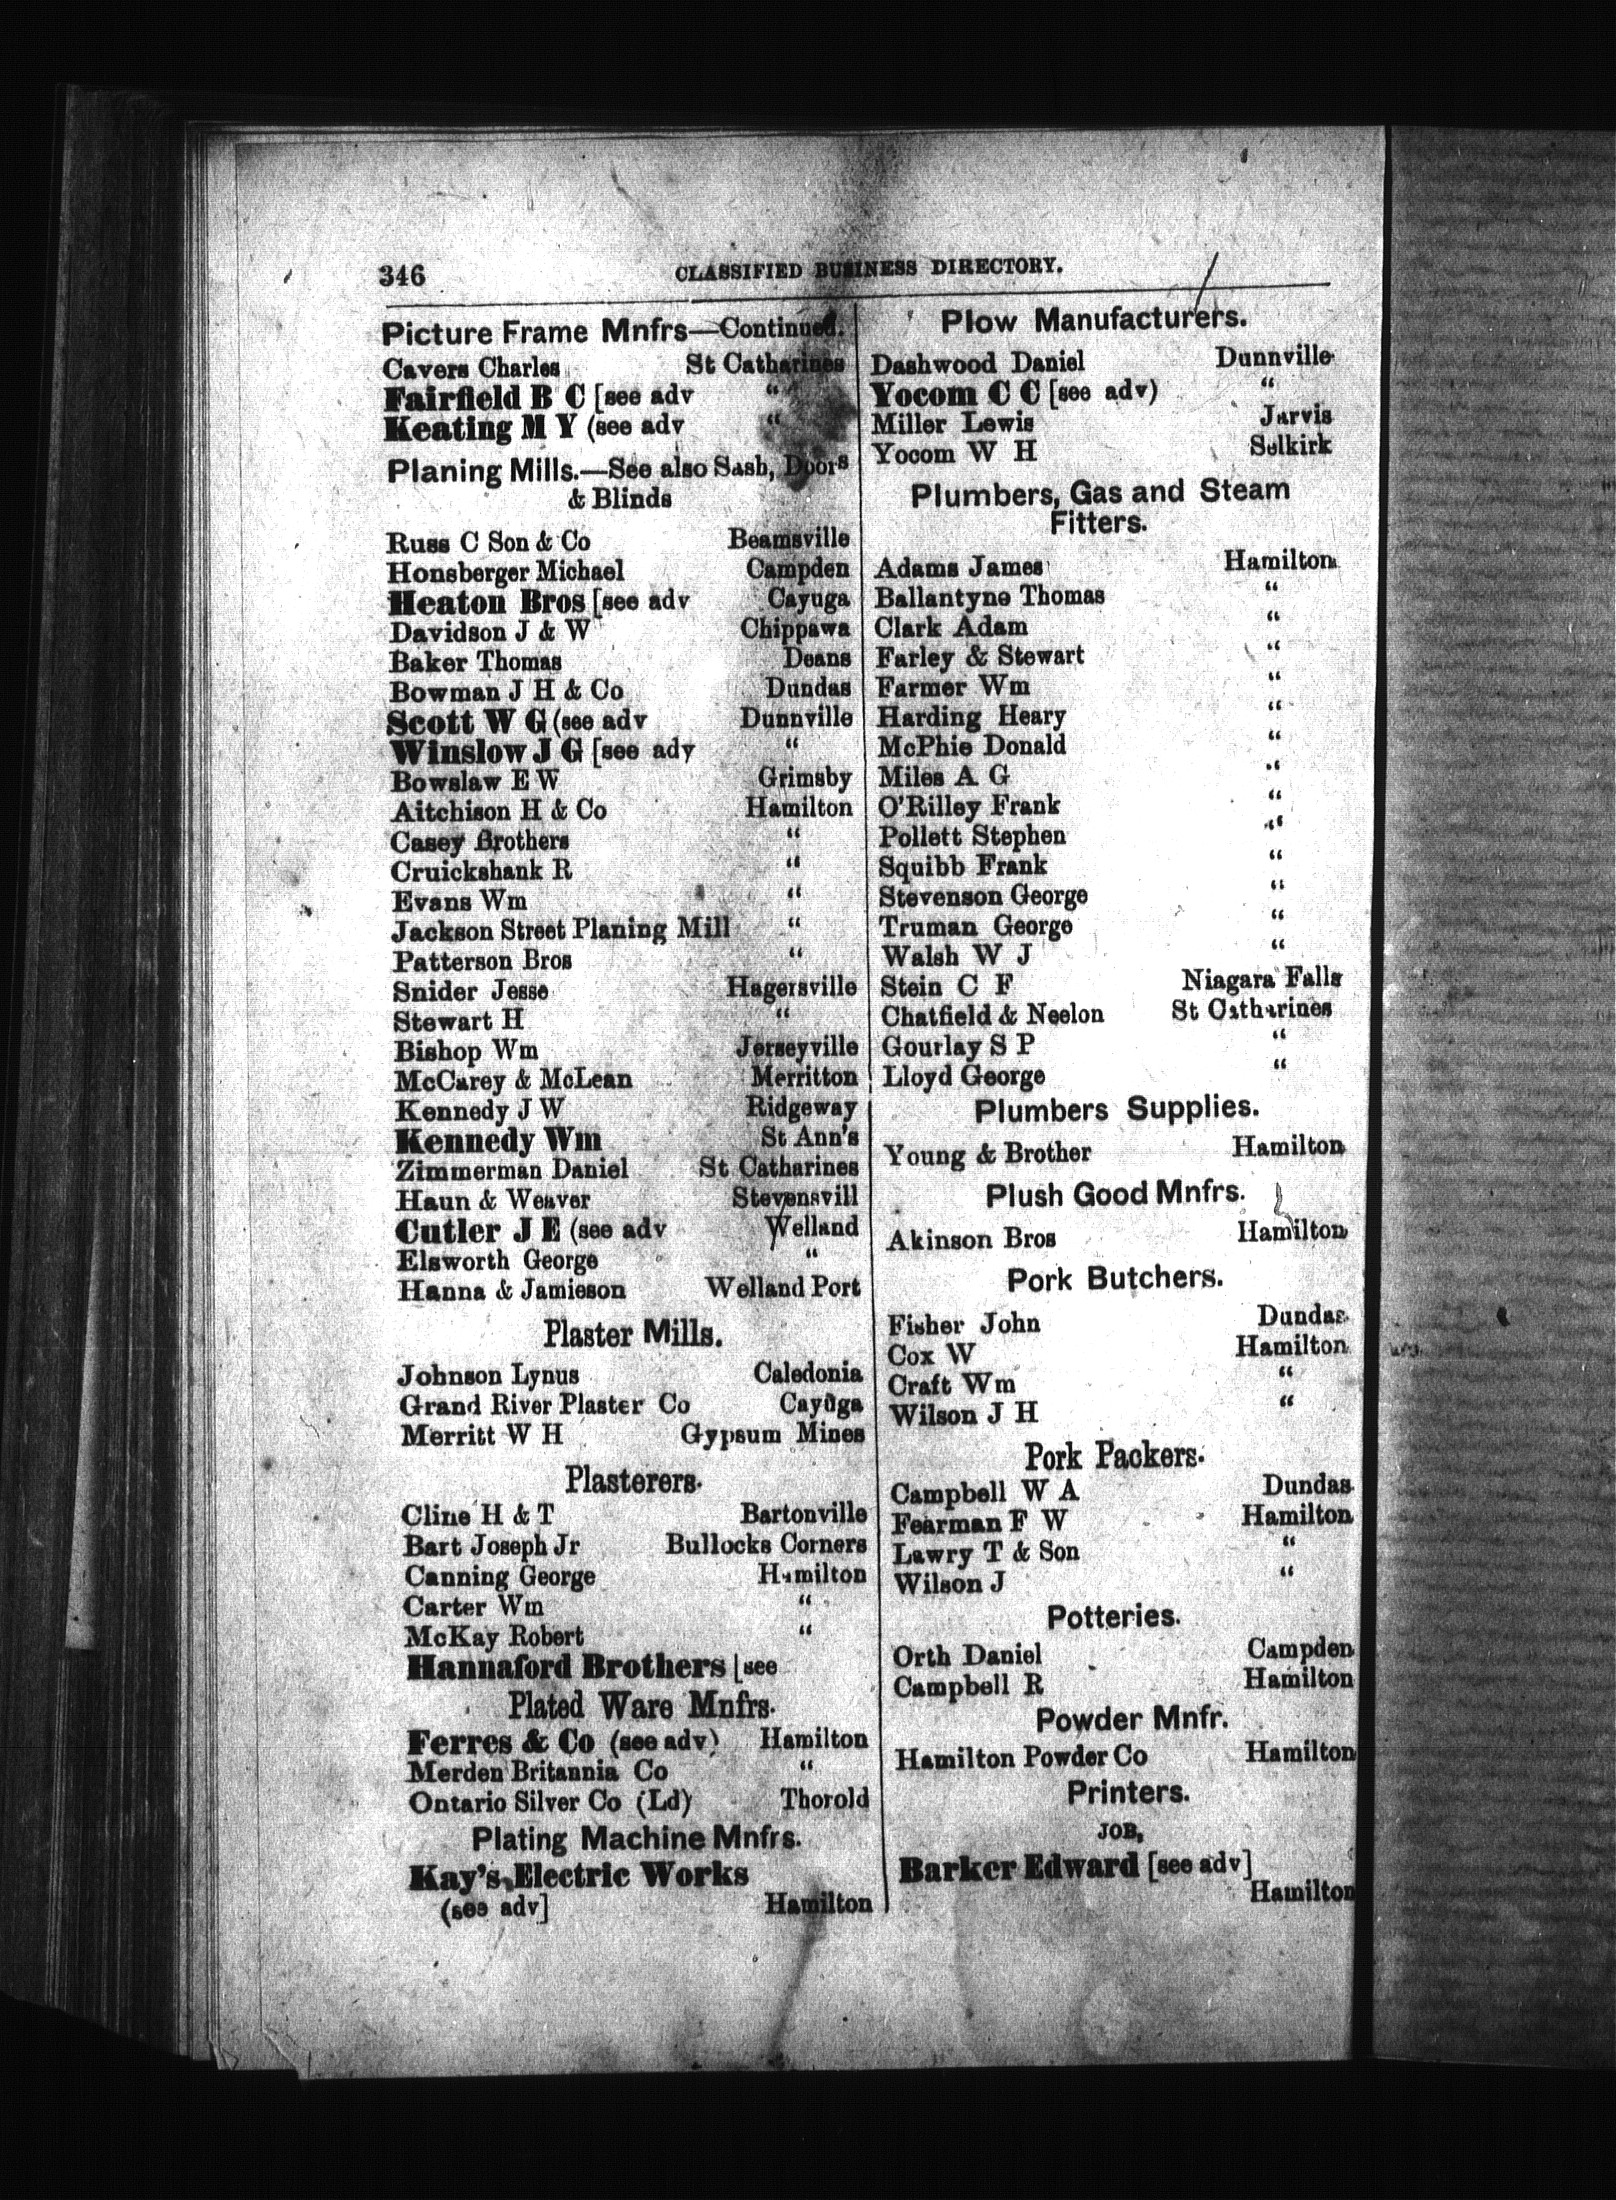 346
CLASSIFIED BUSINESS DIRECTORY.
Picture Frame Mnfrs—Continued.
Cavers Charles St Catharines
Fairfield B C [see adv “
Keating M Y (see adv “
Planing Mills.—See also Sash, Doors
& Blinds
Russ C Son & Co Beamsville
Honsberger Michael Campden
Heaton Bros [see adv Cayuga
Davidson J & W Chippawa
Baker Thomas Deans
Bowman J H & Co Dundas
Scott W G (see adv Dunnville
Winslow J G [see adv “
Bowslaw E W Grimsby
Aitchison H & Co Hamilton
Casey Brothers “
Cruickshank R “
Evans Wm “
Jackson Street Planing Mill “
Patterson Bros “
Snider Jesse Hagersville
Stewart H “
Bishop Wm Jerseyville
McCarey & McLean Merritton
Kennedy J W Ridgeway
Kennedy Wm St Ann's
Zimmerman Daniel St Catharines
Haun & Weaver Stevensvill
Cutler J E (see adv Welland
Elsworth George “
Hanna & Jamieson Welland Port
Plaster Mills.
Johnson Lynus Caledonia
Grand River Plaster Co Cayuga
Merritt W H Gypsum Mines
Plasterers.
Cline H & T Bartonville
Bart Joseph Jr Bullocks Corners
Canning George Hamilton
Carter Wm “
McKay Robert “
Hannaford Brothers [see
Plated Ware Mnfrs.
Ferres & Co (see adv) Hamilton
Merden Britannia Co “
Ontario Silver Co (Ld) Thorold
Plating Machine Mnfrs.
Kay's Electric Works
(see adv] Hamilton
Plow Manufacturers.
Dashwood Daniel Dunnville
Yocom C C [see adv) “
Miller Lewis Jarvis
Yocom W H Selkirk
Plumbers, Gas and Steam
Fitters.
Adams James Hamilton
Ballantyne Thomas “
Clark Adam “
Farley & Stewart “
Farmer Wm “
Harding Heary “
McPhie Donald “
Miles A G “
O'Rilley Frank “
Pollett Stephen “
Squibb Frank “
Stevenson George “
Truman George “
Walsh W J “
Stein C F Niagara Falls
Chatfield & Neelon St Catharines
Gourlay S P “
Lloyd George “
Plumbers Supplies.
Young & Brother Hamilton
Plush Good Mnfrs.
Akinson Bros Hamilton
Pork Butchers.
Fisher John Dundas
Cox W Hamilton
Craft Wm “
Wilson J H “
Pork Packers.
Campbell W A Dundas
Fearman F W Hamilton
Lawry T & Son “
Wilson J “
Potteries.
Orth Daniel Campden
Campbell R Hamilton
Powder Mnfr.
Hamilton Powder Co Hamilton
Printers.
JOB,
Barker Edward [see adv]
Hamilton